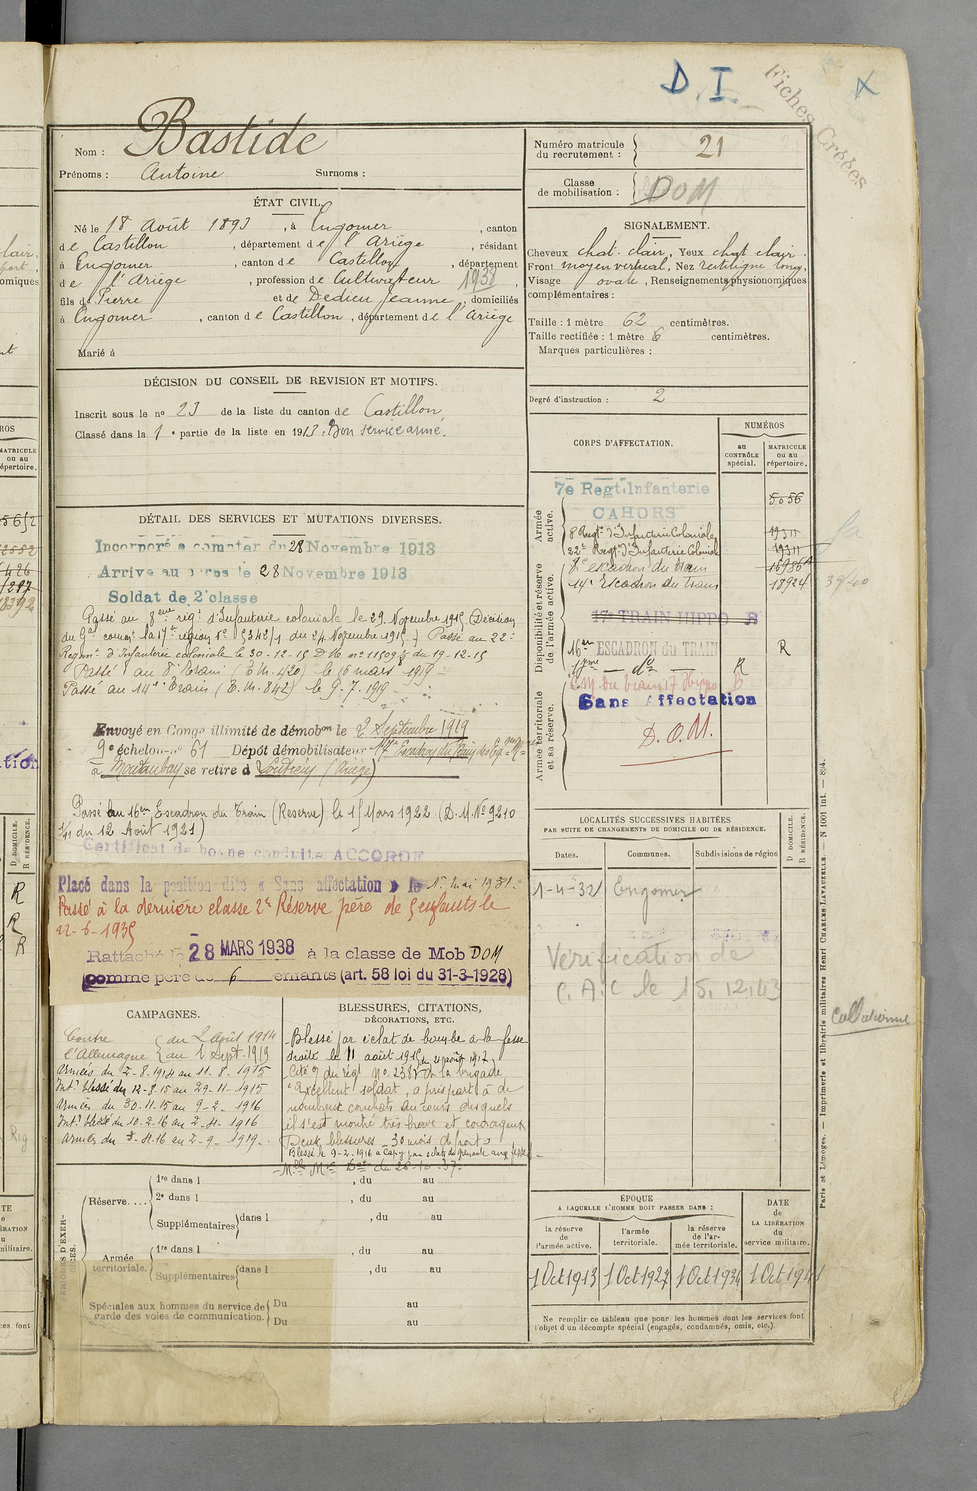 D. I.
Fiches Créées
Nom : Bastide
Prénoms : Antoine Surnoms :
ÉTAT CIVIL.
Né le 18 Août 1893, à Engomer, canton
de Castillon, département de l'Ariège, résidant
à Engomer, canton de Castillon, département
de l'Ariège, profession de Cultivateur 1938,
fils de Pierre et de Dedieu Jeanne, domiciliés
à Engomer, canton de Castillon, département de l'Ariège
Marié à
DÉCISION DU CONSEIL DE REVISION ET MOTIFS.
Inscrit sous le nº 23 de la liste du canton de Castillon
Classé dans la 1e partie de la liste en 1913. Bon service armé.
DÉTAIL DES SERVICES ET MUTATIONS DIVERSES.
Incorporé à compter du 28 Novembre 1913
Arrivé au corps le 28 Novembre 1913
Soldat de 2e classe
Passé au 8eme régt d'Infanterie coloniale le 29 Novembre 1915 (Décision
du Gal commt la 17e région Nº 5342/1 du 24 Novembre 1915.) Passé au 22e
Regimt d'Infanterie coloniale le 30-12-15 D M nº 11509 du 19-12-15
Passé au 8e Train (E.M. 420) le 16 mars 1919
Passé au 14e Train (E.M. 842) le 9-7-1919
Envoyé en Congé illimité de démobon le 2 Septembre 1919
9e échelon nº 61 Dépôt démobilisateur 17e Escadron du Train des Eq.
à Montauban se retire à (Ariège)
Passé au 16em Escadron du Train (Reserve) le 15 Mars 1922 (D.M. Nº 9210
1/11 du 12 Août 1921)
Certificat de bonne conduite ACCORDÉ
Placé dans la position dite « Sans affectation » le 1er Mai 1931.
Passé à la dernière classe 2e Réserve père de 5 enfants le
22-6-1935
Rattaché le 28 MARS 1938 à la classe de Mob DOM
comme père de 6 enfants (art. 58 loi du 31-3-1928)
CAMPAGNES.
Contre du 2 Août 1914
l'Allemagne au 1 Sept 1919
Armées du 2-8-1914 au 11-8-1915
Intr blessé du 12-8-15 au 29-11-1915
Armées du 30-11-15 au 9-2-1916
Intr blessé du 10-2-16 au 2-4-1916
Armées du 3-4-16 au 2-9-1919.
BLESSURES, CITATIONS,
DÉCORATIONS, ETC.
Blessé par éclat de bombe à la fesse
droite le 11 août 1915
Cité O du régt nº 238 de la brigade
"Excellent soldat, a pris part à de
nombreux combats au cours desquels
il s'est montré très brave et courageux
Deux blessures 30 mois de front"
Blessé le 9-2-1916 à Cappy par éclats de grenade aux fesses
PÉRIODES D'EXERCICES.
Réserve.... 1re dans l , du au
2e dans l , du au
Supplémentaires dans l , du au
Armée territoriale. 1re dans l , du au
Supplémentaires dans l , du au
Spéciales aux hommes du service de garde des voies de communication. Du au
Du au
Numéro matricule du recrutement : 21
Classe de mobilisation : DOM
SIGNALEMENT.
Cheveux chat. clair, Yeux chat clair.
Front moyen vertical, Nez rectiligne long,
Visage ovale, Renseignements physionomiques
complémentaires :
Taille : 1 mètre 62 centimètres.
Taille rectifiée : 1 mètre 6 centimètres.
Marques particulières :
Degré d'instruction : 2
CORPS D'AFFECTATION.
NUMÉROS
au CONTRÔLE spécial.
MATRICULE ou au répertoire.
Armée active.
7e Régt Infanterie 5056
CAHORS
8 Régt d'Infanterie Coloniale 19311
22e Régt d'Infanterie Coloniale 19311
Disponibilité et réserve de l'armée active.
8e escadron du train
14e Escadron du Train 18924
17e TRAIN HIPPO R
16em ESCADRON du TRAIN R
17eme — do — R
Armée territoriale et sa réserve.
Sans Affectation
D.O.M.
LOCALITÉS SUCCESSIVES HABITÉES
PAR SUITE DE CHANGEMENTS DE DOMICILE OU DE RÉSIDENCE.
Dates. Communes. Subdivisions de région
D DOMICILE. R RÉSIDENCE.
1-4-32 Engomer
Vérification de
C.A.C le 15.12.43
Collationné
ÉPOQUE
A LAQUELLE L'HOMME DOIT PASSER DANS :
DATE de LA LIBÉRATION du service militaire.
la réserve de l'armée active. l'armée territoriale. la réserve de l'armée territoriale.
1 Oct 1913 1 Oct 1927 1 Oct 1934 1 Oct 1941
Ne remplir ce tableau que pour les hommes dont les services font
l'objet d'un décompte spécial (engagés, condamnés, omis, etc.).
Paris et Limoges. — Imprimerie et librairie militaires Henri CHARLES-LAVAUZELLE. — N 1001 int. — 894.